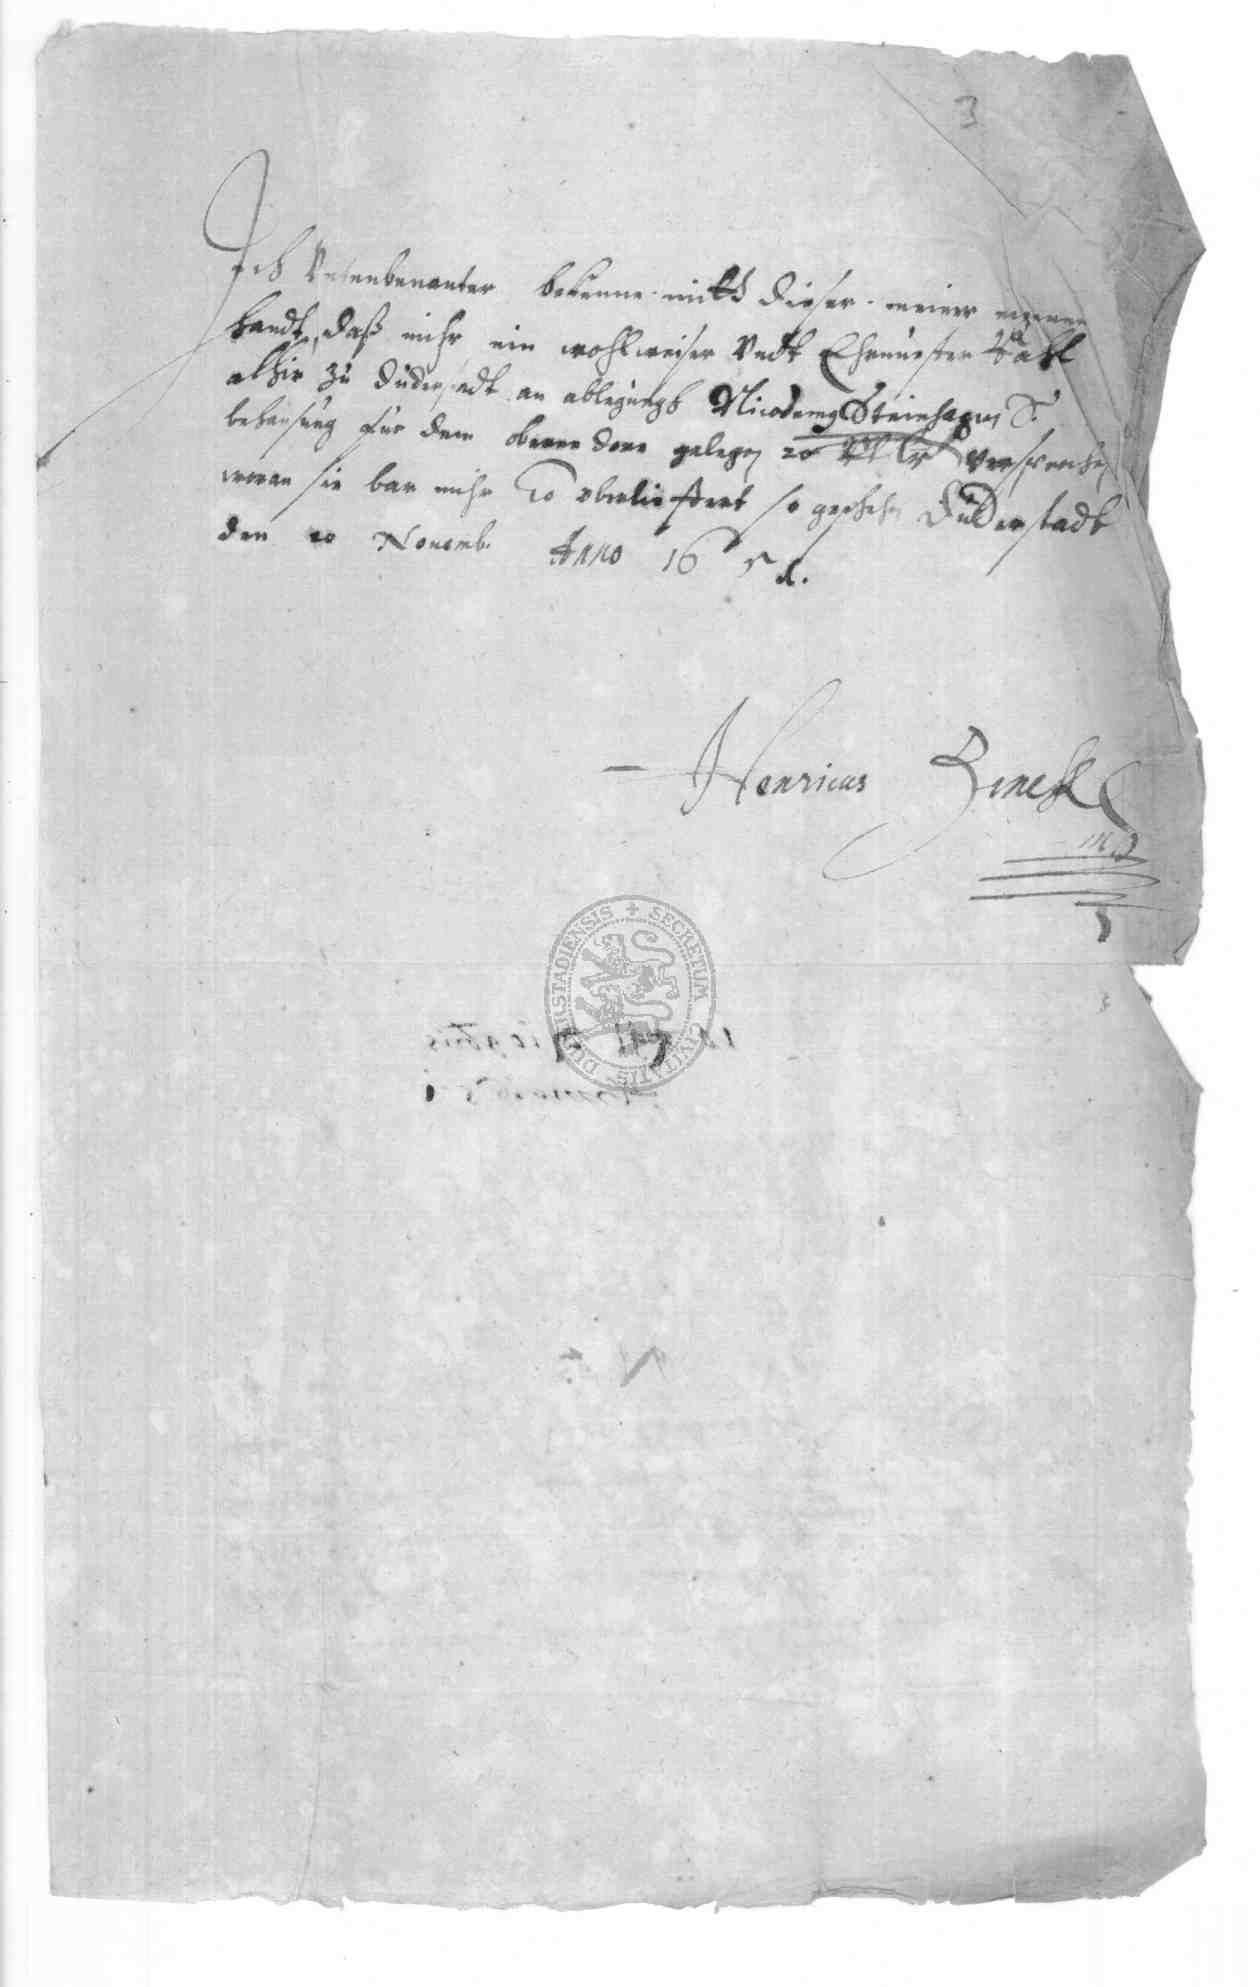 3
Ich Untenbenanter bekenne mitt dieser meiner eigenen
handt, daß mihr ein wohlweiser undt Ehrnuester Raht
alhir zu Duderstadt an ablegungh Nicodemg Steinhagen S.
behausung fur dem oberen dore gelegen 20 versprochen
woran sie bar mihr 10 uberlieffert so geschehen Duderstadt
den 20 Nouemb. Anno 16
Henricus
mp
SECRETUM CIVITATIS DUDERSTADIENSIS